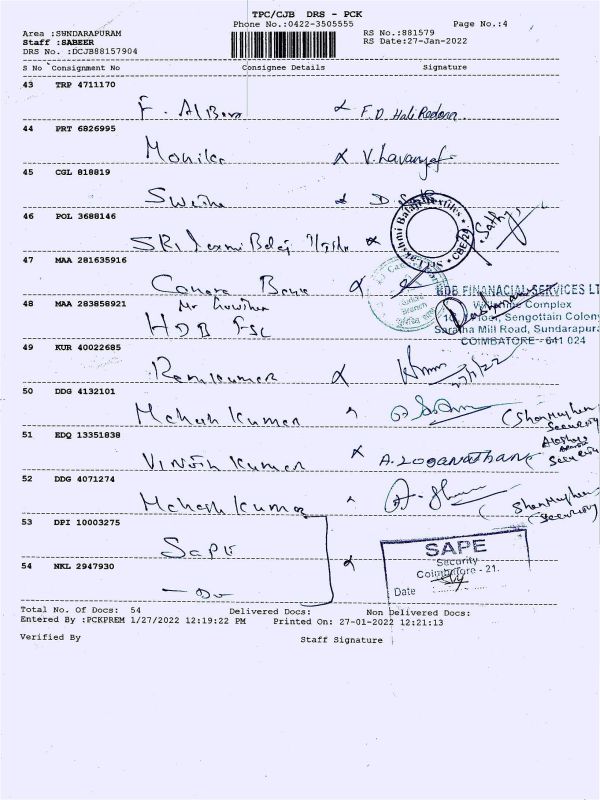 TPC/CJB DRS - PCK
Phone No.:0422-3505555 Page No.:4
Area :SUNDARAPURAM RS No.:881579
Staff :SABEER RS Date:27-Jan-2022
DRS No. :DCJB88157904
S No Consignment No Consignee Details Signature
43 TRP 4711170
F.
44 PRT 6826995
Monika V.
45 CGL 818819
46 POL 3688146
Sri Lakshmi Balaji Textiles
CBE-24
Sathya
47 MAA 281635916
Canara Bank
48 MAA 283858921
HDB FSL
HDB FINANACIAL SERVICES LT
Complex
Floor, Sengottain Colony
Saradha Mill Road, Sundarapura
COIMBATORE - 641 024
49 KUR 40022685
Ramkumar
27/1/22
50 DDG 4132101
Mahesh Kumar
(Shanmughan
Security)
51 EDQ 13351838
Vinoth Kumar A. Loganathan
Security
52 DDG 4071274
Mahesh Kumar
(Shanmughan
Security)
53 DPI 10003275
Sape
SAPE
Security
Coimbatore - 21.
Date
54 NKL 2947930
- Do
Total No. Of Docs: 54 Delivered Docs: Non Delivered Docs:
Entered By :PCKPREM 1/27/2022 12:19:22 PM Printed On: 27-01-2022 12:21:13
Verified By Staff Signature